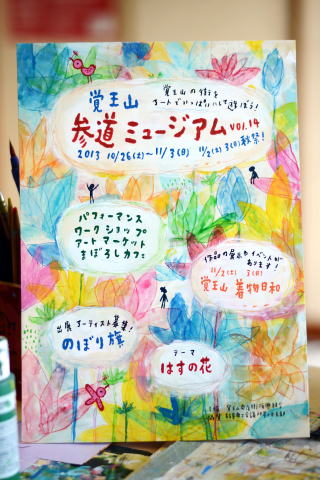 覚王山
覚王山の街を
アートでいっぱいにして遊ぼう!
参道ミュージアム VOL.14
2013 10/26(土)~11/3(日) 11/2(土)3(日)秋祭!
パフォーマンス
ワークショップ
アートマーケット
まぼろしカフェ
作品の展示やイベントが
あります!
11/2(土) 3(日)
覚王山 着物日和
出展アーティスト募集!
のぼり旗
テーマ
はすの花